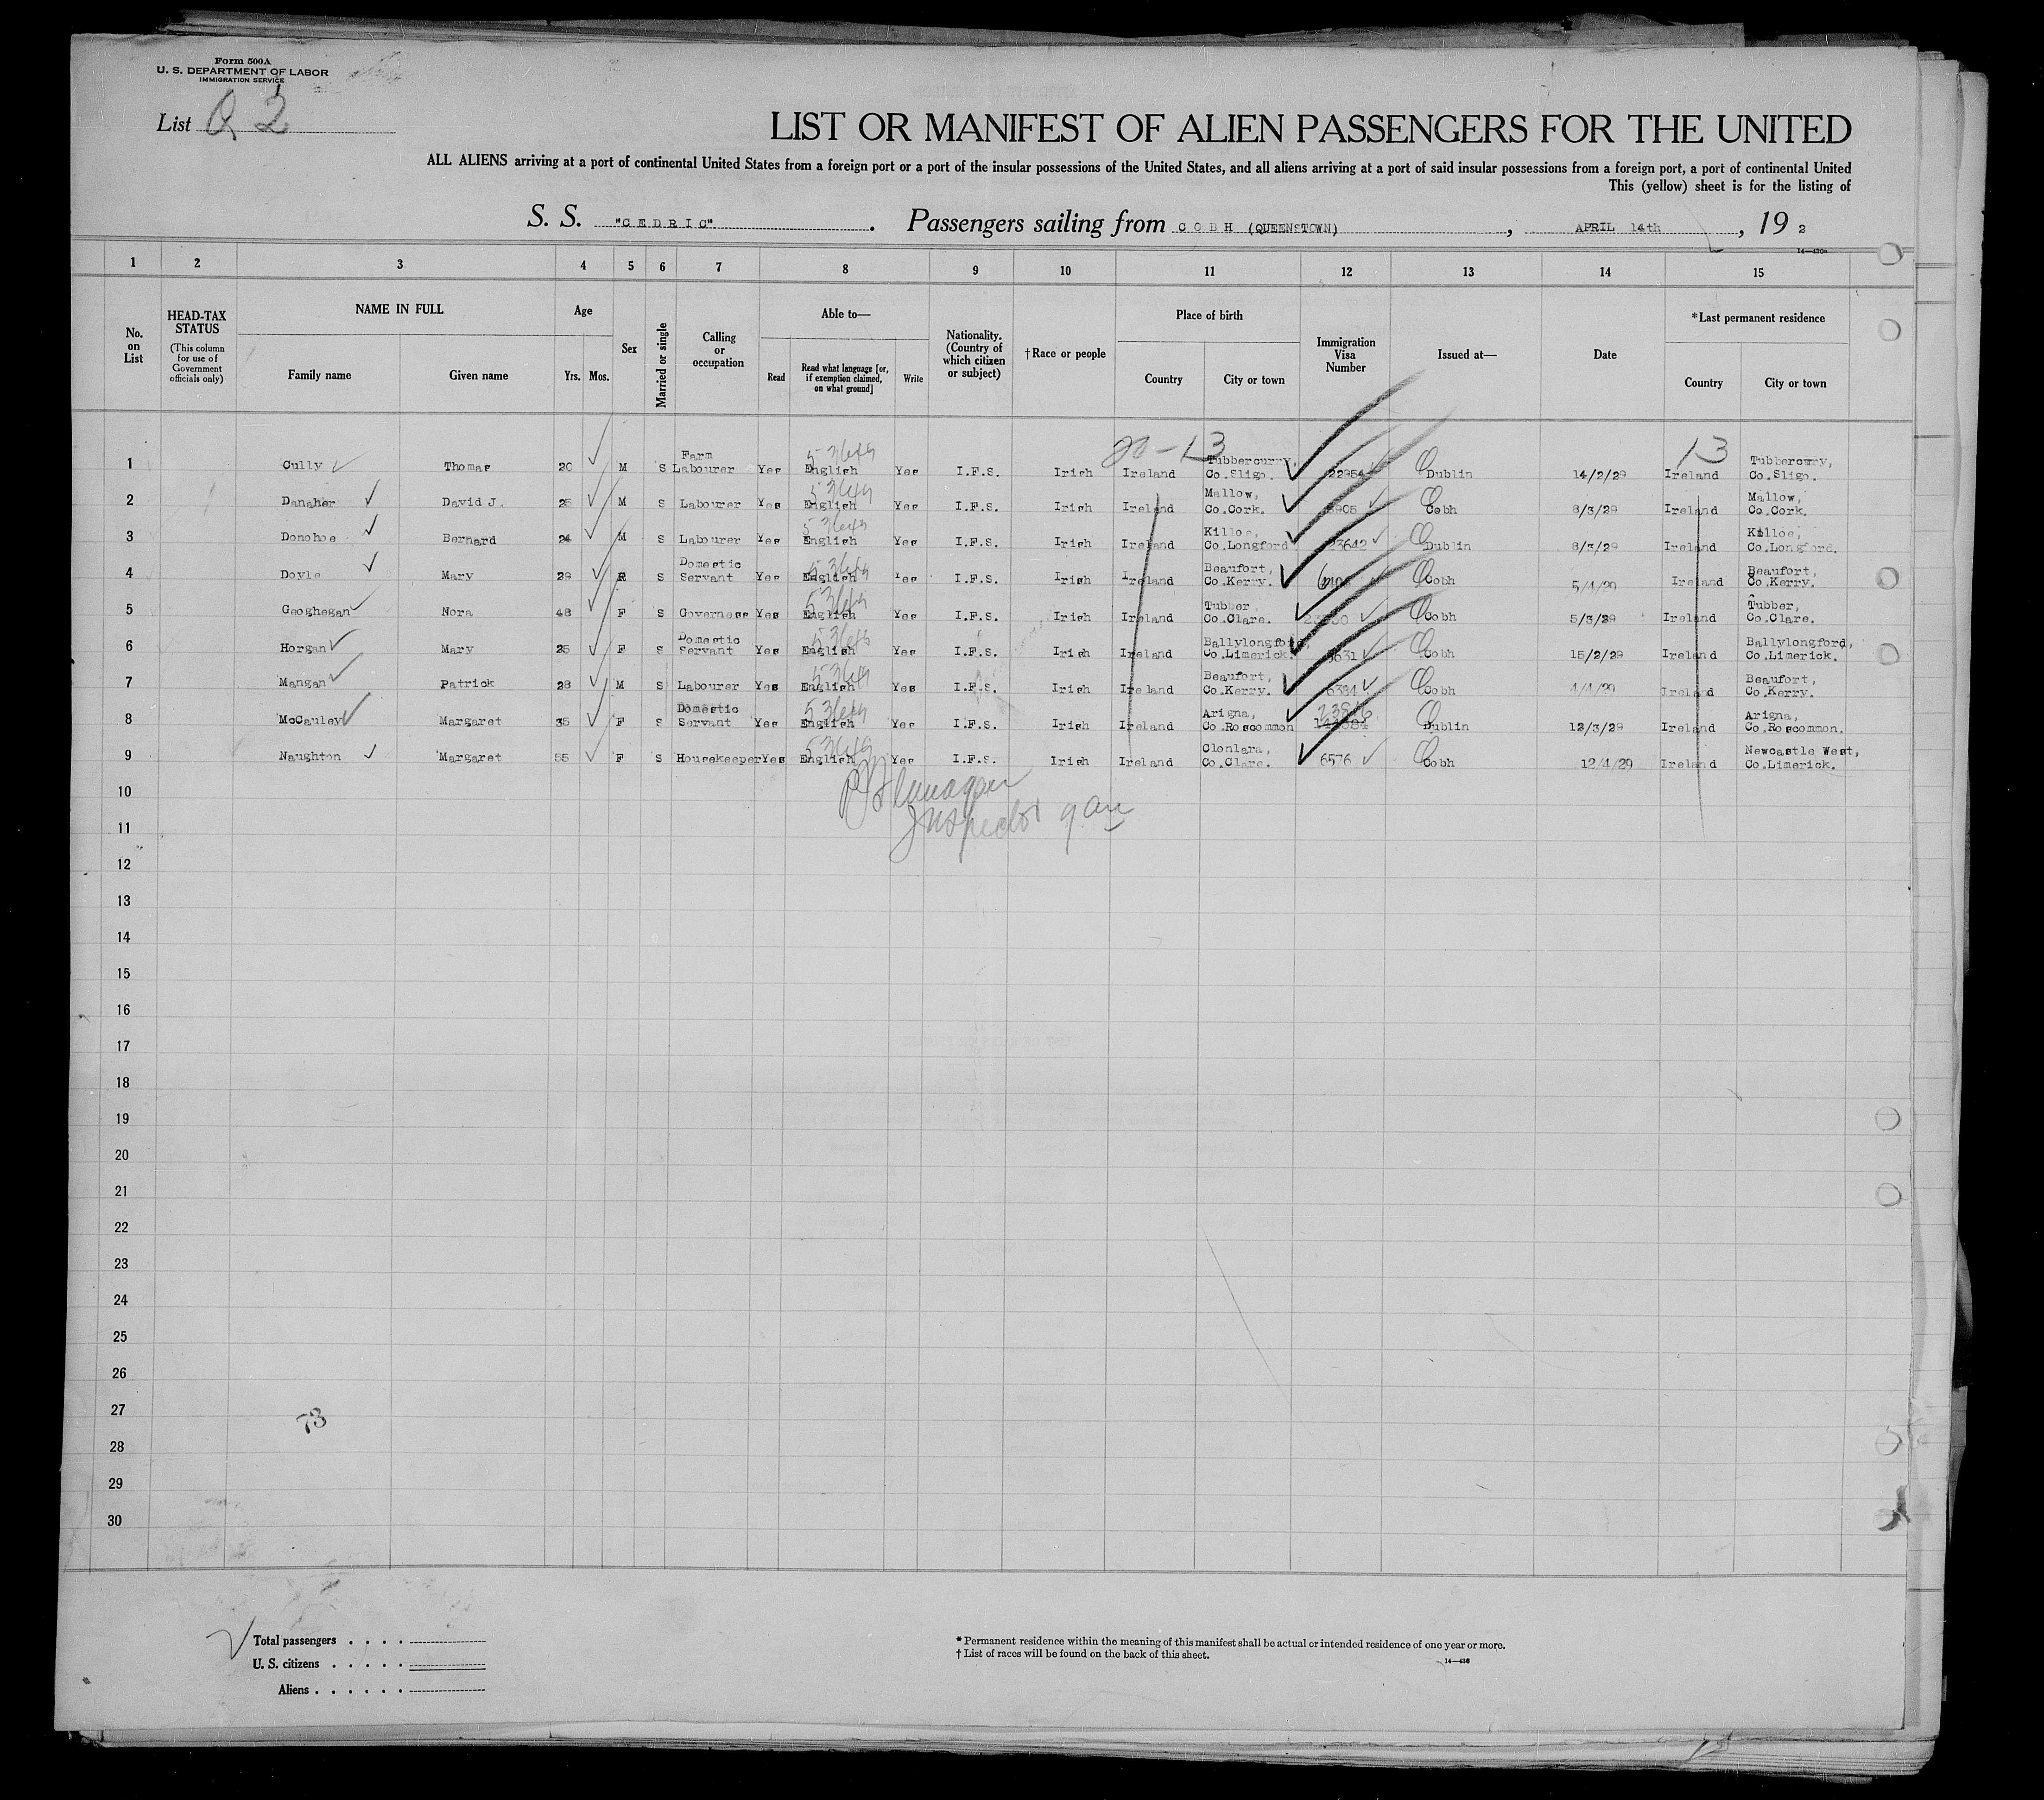 Form 500A
U. S. DEPARTMENT OF LABOR
IMMIGRATION SERVICE
List Q 2
LIST OR MANIFEST OF ALIEN PASSENGERS FOR THE UNITED
ALL ALIENS arriving at a port of continental United States from a foreign port or a port of the insular possessions of the United States, and all aliens arriving at a port of said insular possessions from a foreign port, a port of continental United
This (yellow) sheet is for the listing of
S. S. "CEDRIC". Passengers sailing from COBH (QUEENSTOWN), APRIL 14th, 192
1 2 3 4 5 6 7 8 9 10 11 12 13 14 15
No. on List
HEAD-TAX STATUS (This column for use of Government officials only)
NAME IN FULL Family name Given name
Age Yrs. Mos.
Sex
Married or single
Calling or occupation
Able to— Read Read what language [or, if exemption claimed, on what ground] Write
Nationality. (Country of which citizen or subject)
†Race or people
Place of birth Country City or town
Immigration Visa Number
Issued at—
Date
*Last permanent residence Country City or town
20-13 13
1 Cully Thomas 20 M S Farm Labourer Yes English Yes I.F.S. Irish Ireland Tubbercurry, Co.Sligo. 22954 Dublin 14/2/29 Ireland Tubbercurry, Co.Sligo.
2 Danaher David J. 25 M S Labourer Yes English Yes I.F.S. Irish Ireland Mallow, Co.Cork. Cobh 8/3/29 Ireland Mallow, Co.Cork.
3 Donohoe Bernard 24 M S Labourer Yes English Yes I.F.S. Irish Ireland Killoe, Co.Longford 23642 Dublin 8/3/29 Ireland Killoe, Co.Longford.
4 Doyle Mary 29 S Domestic Servant Yes English Yes I.F.S. Irish Ireland Beaufort, Co.Kerry. Cobh 5/4/29 Ireland Beaufort, Co.Kerry.
5 Geoghegan Nora 48 F S Governess Yes English Yes I.F.S. Irish Ireland Tubber, Co.Clare. Cobh 5/3/29 Ireland Tubber, Co.Clare.
6 Horgan Mary 25 F S Domestic Servant Yes English Yes I.F.S. Irish Ireland Ballylongford, Co.Limerick. Cobh 15/2/29 Ireland Ballylongford, Co.Limerick.
7 Mangan Patrick 28 M S Labourer Yes English Yes I.F.S. Irish Ireland Beaufort, Co.Kerry. 6384 Cobh 4/4/29 Ireland Beaufort, Co.Kerry.
8 McCauley Margaret 35 F S Domestic Servant Yes English Yes I.F.S. Irish Ireland Arigna, Co.Roscommon Dublin 12/3/29 Ireland Arigna, Co.Roscommon.
9 Naughton Margaret 55 F S Housekeeper Yes English Yes I.F.S. Irish Ireland Clonlara, Co.Clare. 6576 Cobh 12/4/29 Ireland Newcastle West, Co.Limerick.
10
Flanagan
11
Inspector
12
13
14
15
16
17
18
19
20
21
22
23
24
25
26
27
73
28
29
30
Total passengers . . . .
U. S. citizens . . . . .
Aliens . . . . . .
* Permanent residence within the meaning of this manifest shall be actual or intended residence of one year or more.
† List of races will be found on the back of this sheet.